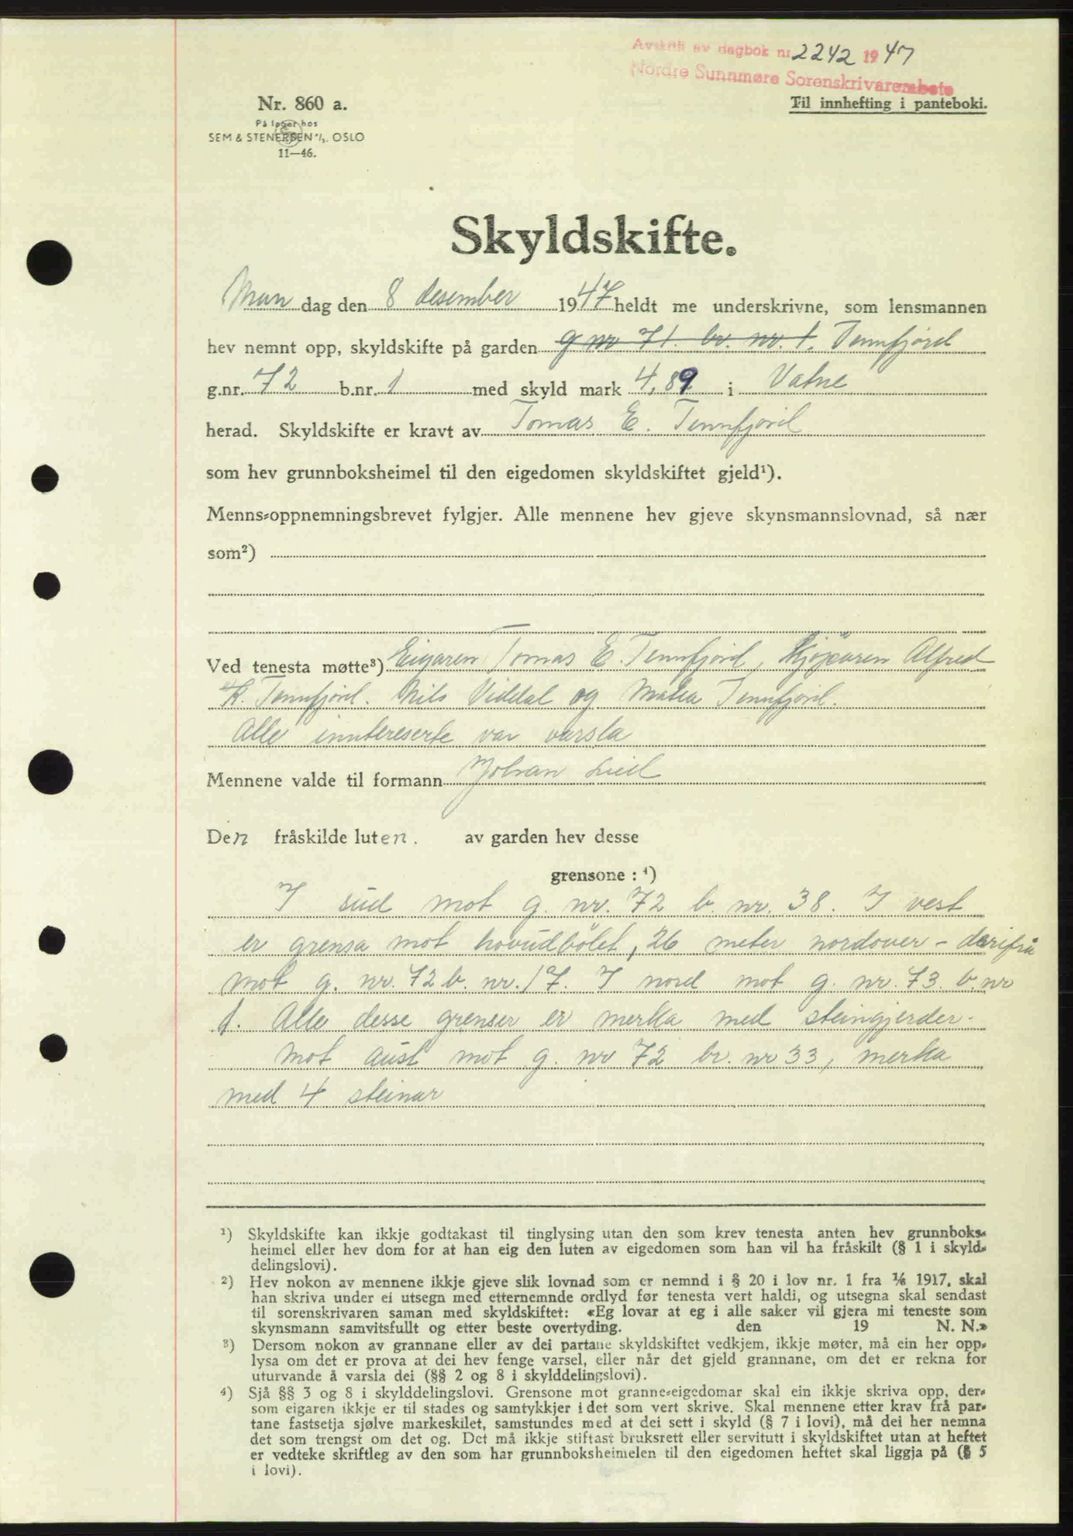 Avskrift av dagbok nr 2242 1947
Nordre Sunnmøre Sorenskrivarembete
Nr. 860 a.
Til innhefting i panteboki.
På lager hos
SEM & STENERSEN A/S. OSLO
11—46.
Skyldskifte.
Mandag den 8 desember 1947 heldt me underskrivne, som lensmannen
hev nemnt opp, skyldskifte på garden g nr 71. br. nr. 1. Tennfjord
g.nr. 72 b.nr. 1 med skyld mark 4,89 i Vatne
herad. Skyldskifte er kravt av Tomas E. Tennfjord
som hev grunnboksheimel til den eigedomen skyldskiftet gjeld¹).
Menns-oppnemningsbrevet fylgjer. Alle mennene hev gjeve skynsmannslovnad, så nær
som²)
Ved tenesta møtte³) Eigaren Tomas E. Tennfjord, Kjøparen Alfred
K. Tennfjord. Nils Viddal og Tennfjord.
Alle inntereserte var varsla
Mennene valde til formann Johan
Den fråskilde luten. av garden hev desse
grensone : ⁴)
I sud mot g. nr. 72 b. nr. 38. I vest
er grensa mot hovudbølet, 26 meter nordover - derifrå
mot g. nr. 72 b. nr. 17. I nord mot g. nr. 73 b. nr
1. Alle desse grenser er merka med steingjerder.
Mot aust mot g. nr 72 br. nr 33, merka
med 4 steinar
¹) Skyldskifte kan ikkje godtakast til tinglysing utan den som krev tenesta anten hev grunnboks-
heimel eller hev dom for at han eig den luten av eigedomen som han vil ha fråskilt (§ 1 i skyld-
delingslovi).
²) Hev nokon av mennene ikkje gjeve slik lovnad som er nemnd i § 20 i lov nr. 1 fra 1/6 1917, skal
han skriva under ei utsegn med etternemnde ordlyd før tenesta vert haldi, og utsegna skal sendast
til sorenskrivaren saman med skyldskiftet: «Eg lovar at eg i alle saker vil gjera mi teneste som
skynsmann samvitsfullt og etter beste overtyding. den 19 N. N.»
³) Dersom nokon av grannane eller av dei partane skyldskiftet vedkjem, ikkje møter, må ein her opp-
lysa om det er prova at dei hev fenge varsel, eller når det gjeld grannane, om det er rekna for
uturvande å varsla dei (§§ 2 og 8 i skylddelingslovi).
⁴) Sjå §§ 3 og 8 i skylddelingslovi. Grensone mot granne-eigedomar skal ein ikkje skriva opp, der-
som eigaren ikkje er til stades og samtykkjer i det som vert skrive. Skal mennene etter krav frå par-
tane fastsetja sjølve markeskilet, samstundes med at dei sett i skyld (§ 7 i lovi), må dei her nemna
det som trengst om det og. Det må ikkje stiftast bruksrett eller servitutt i skyldskiftet utan at heftet
er vedteke skriftleg av den som har grunnboksheimelen til den eigedomen heftet skal liggja på (§ 5
i lovi).